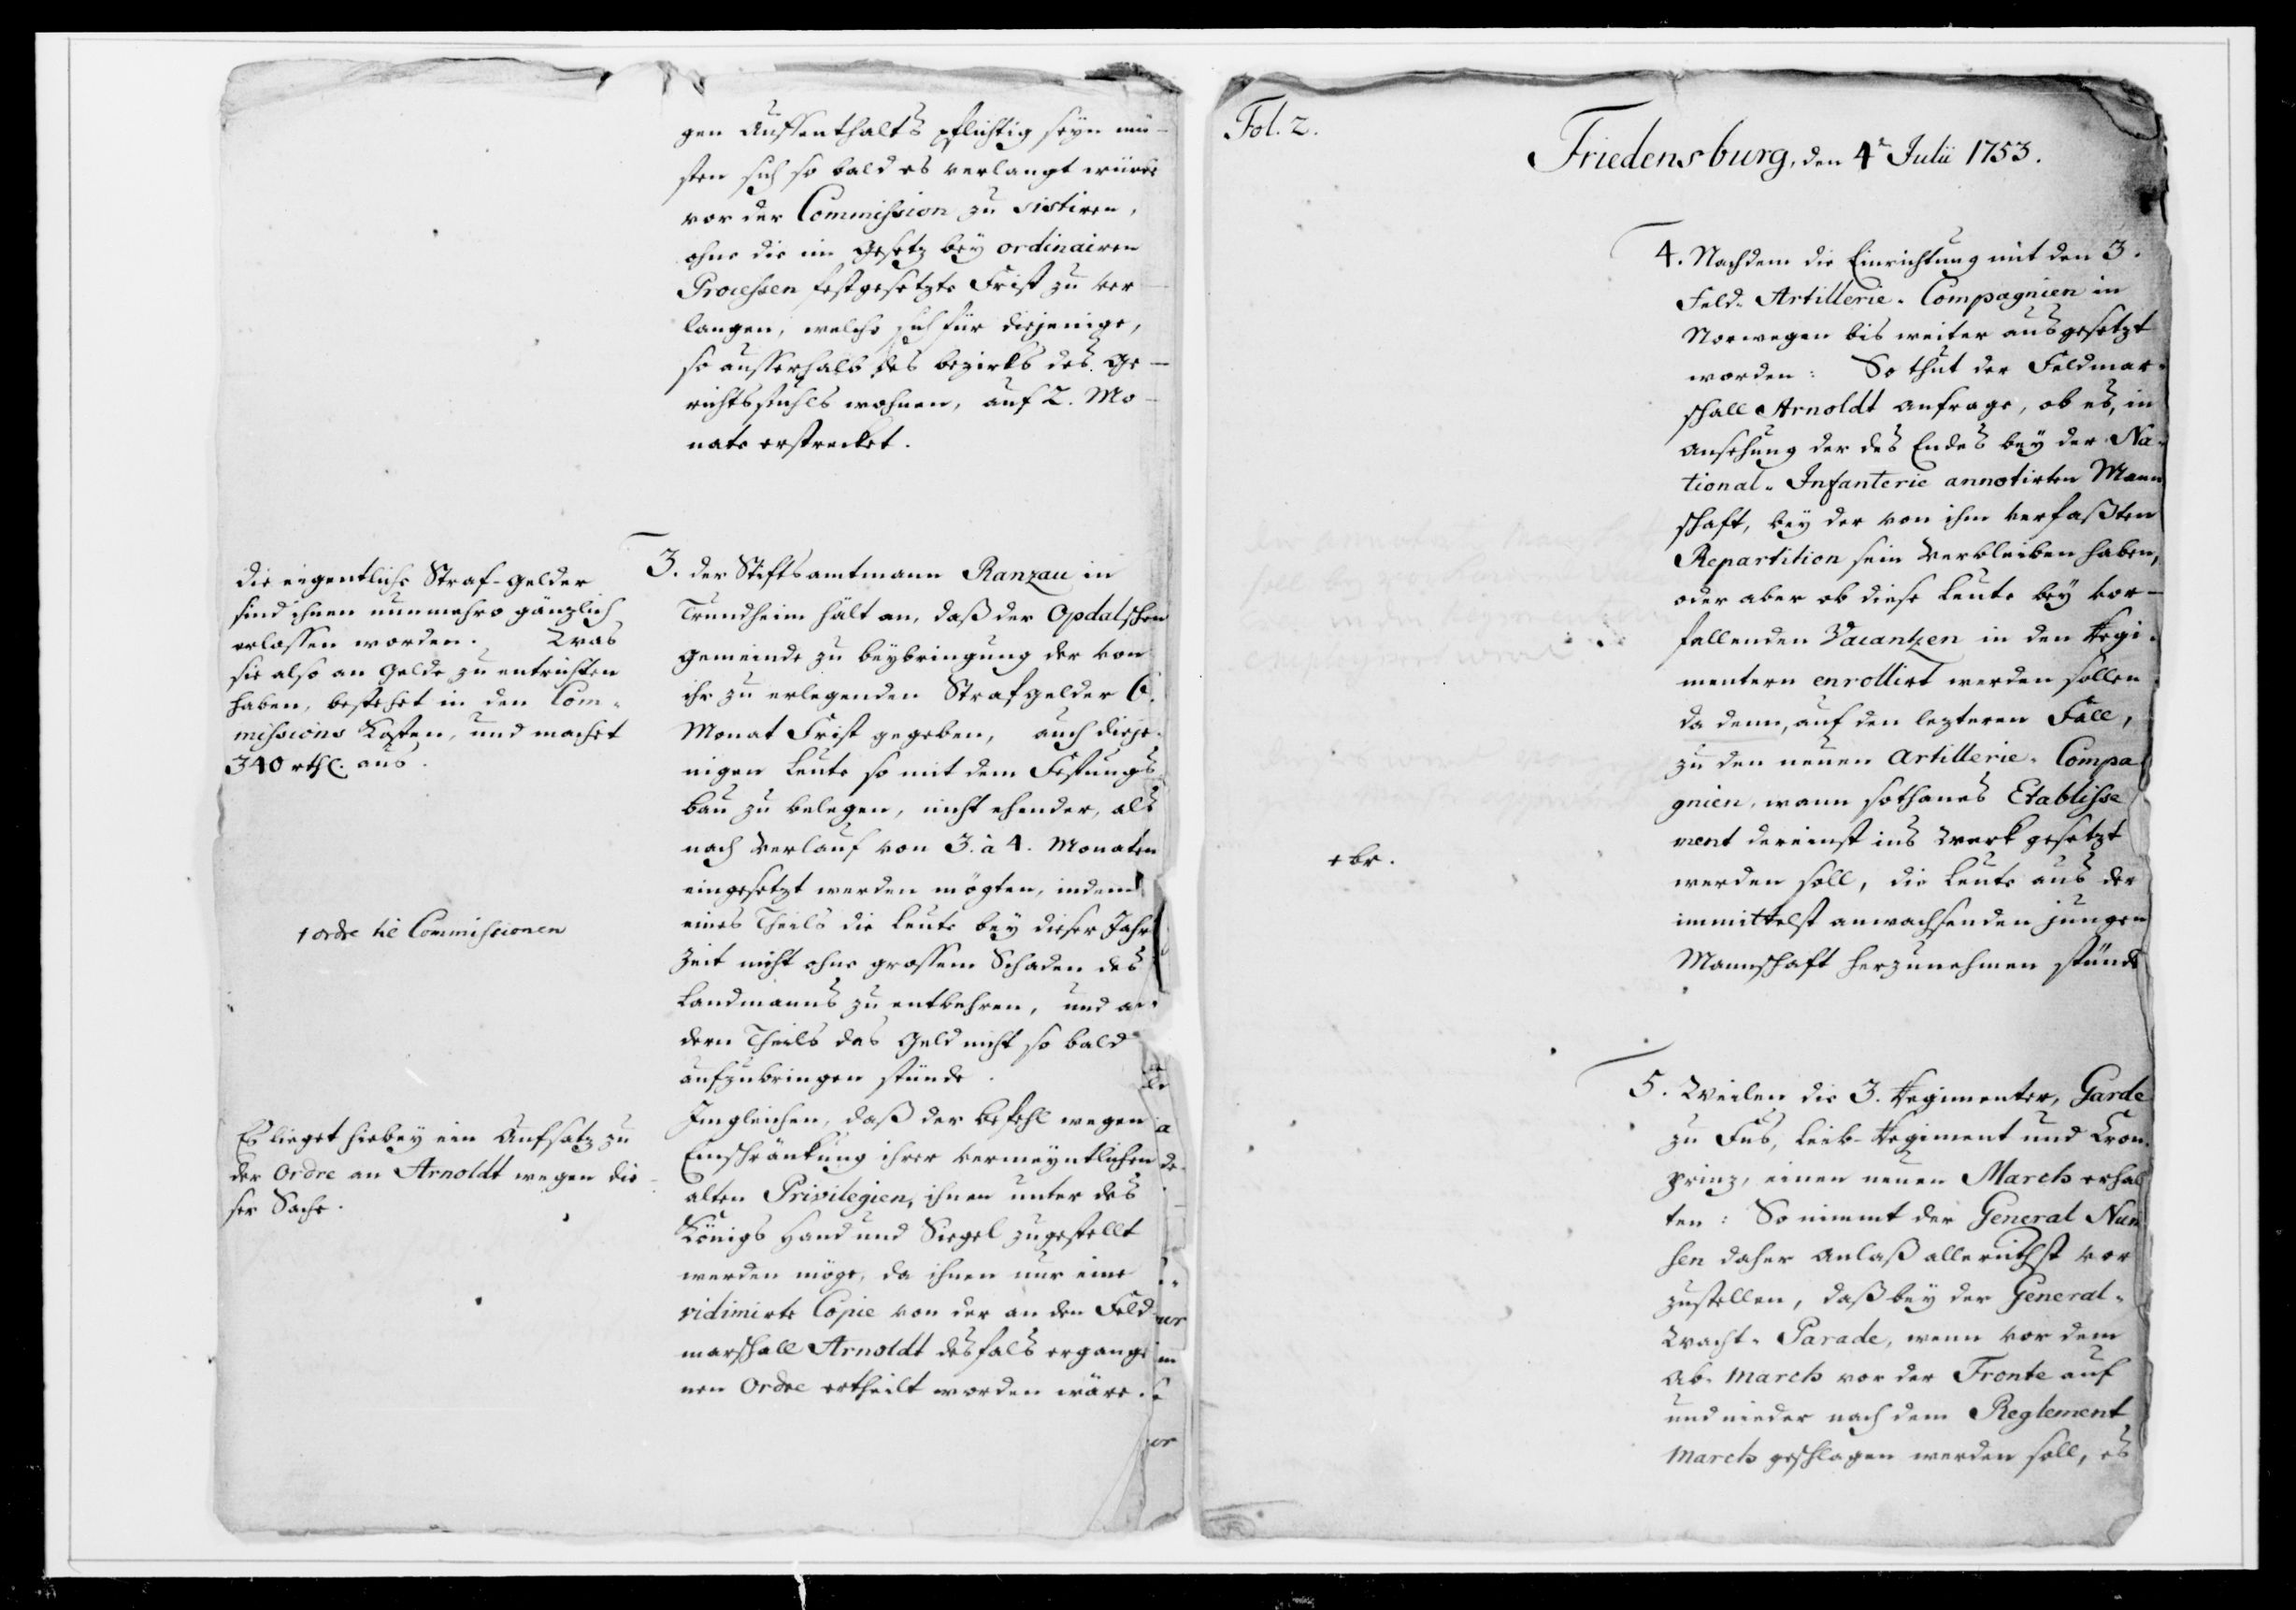 gen Auffenthalts pflichtig seyn mü-
sten sich so bald es verlangt würde
vor der Commission zu sistiren,
ohne die im Gesetz bey ordinairen
Processen festgesetzte Frist zu ver-
langen, welche sich für diejenige,
so ausserhalb des bezirks des Ge-
richtsstuhls wohnen, auf 2. Mo-
nate erstrecket.
3. der Stiftsamtmann Ranzau in
Trundheim hält an, daß der Opdalschen
Gemeinde zu beybringung der von
ihr zu erlegenden Strafgelder 6.
Monat Frist gegeben, auch dieje-
nigen Leute so mit dem Festungs
bau zu belegen, nicht ehender, als
nach Verlauf von 3. à 4. Monaten
eingesetzt werden mögten, indem
eines Theils die Leute bey dieser Jahr
Zeit nicht ohne grossem Schaden des
Landmanns zu entbehren, und an-
dern Theils das Geld nicht so bald
aufzubringen stünde.
Imgleichen, daß der befehl wegen
Einschränkung ihrer vermeyntlichen
alten Privilegien, ihnen unter des
Königs Hand und Siegel zugestellt
werden möge, da ihnen nur eine
vidimirte Copie von der an den Feld-
marschall Arnoldt desfals ergange
nen Ordre ertheilt worden wäre.
die eigentliche Straf-Gelder
sind ihnen nunmehro gänzlich
erlassen worden. Was
sie also an Gelde zu entrichten
haben, bestehet in den Com-
missions Kosten, und machet
340 rthl. aus.
1 ordre til Commissionen
Es lieget hiebey ein Aufsatz zu
der Ordre an Arnoldt wegen die-
ser Sache.
Fol. 2.
Friedensburg, den 4n Julii 1753.
4. Nachdem die Einrichtung mit den 3.
Feld-Artillerie-Compagnien in
Norwegen bis weiter ausgesetzt
worden: So thut der Feldmar-
schall Arnoldt anfrage, ob es, in
ansehung der des Endes bey der Na-
tional-Infanterie annotirten Mann
schaft, bey der von ihm verfaßten
Repartition sein Verbleiben haben,
oder aber ob diese Leute bey vor-
fallenden Vacantzen in den Regi-
mentern enrollirt werden sollen
da denn, auf den lezteren Fall,
zu den neuen Artillerie-Compa
gnien, wann sothanes Etablisse
ment dereinst ins Werk gesetzt
werden soll, die Leute aus der
immittelst anwachsenden jungen
Mannschaft herzunehmen stünde
br.
5. Weilen die 3. Regimenter, Garde
zu Fus, Leib-Regiment und Cron-
prinz, einen neuen March erhal
ten: So nimmt der General Num
sen daher Anlaß allerunthst vor
zustellen, daß bey der General-
Wacht-Parade, wenn vor dem
Ab-march vor der Fronte auf
und nieder nach dem Reglement
March geschlagen werden soll, es